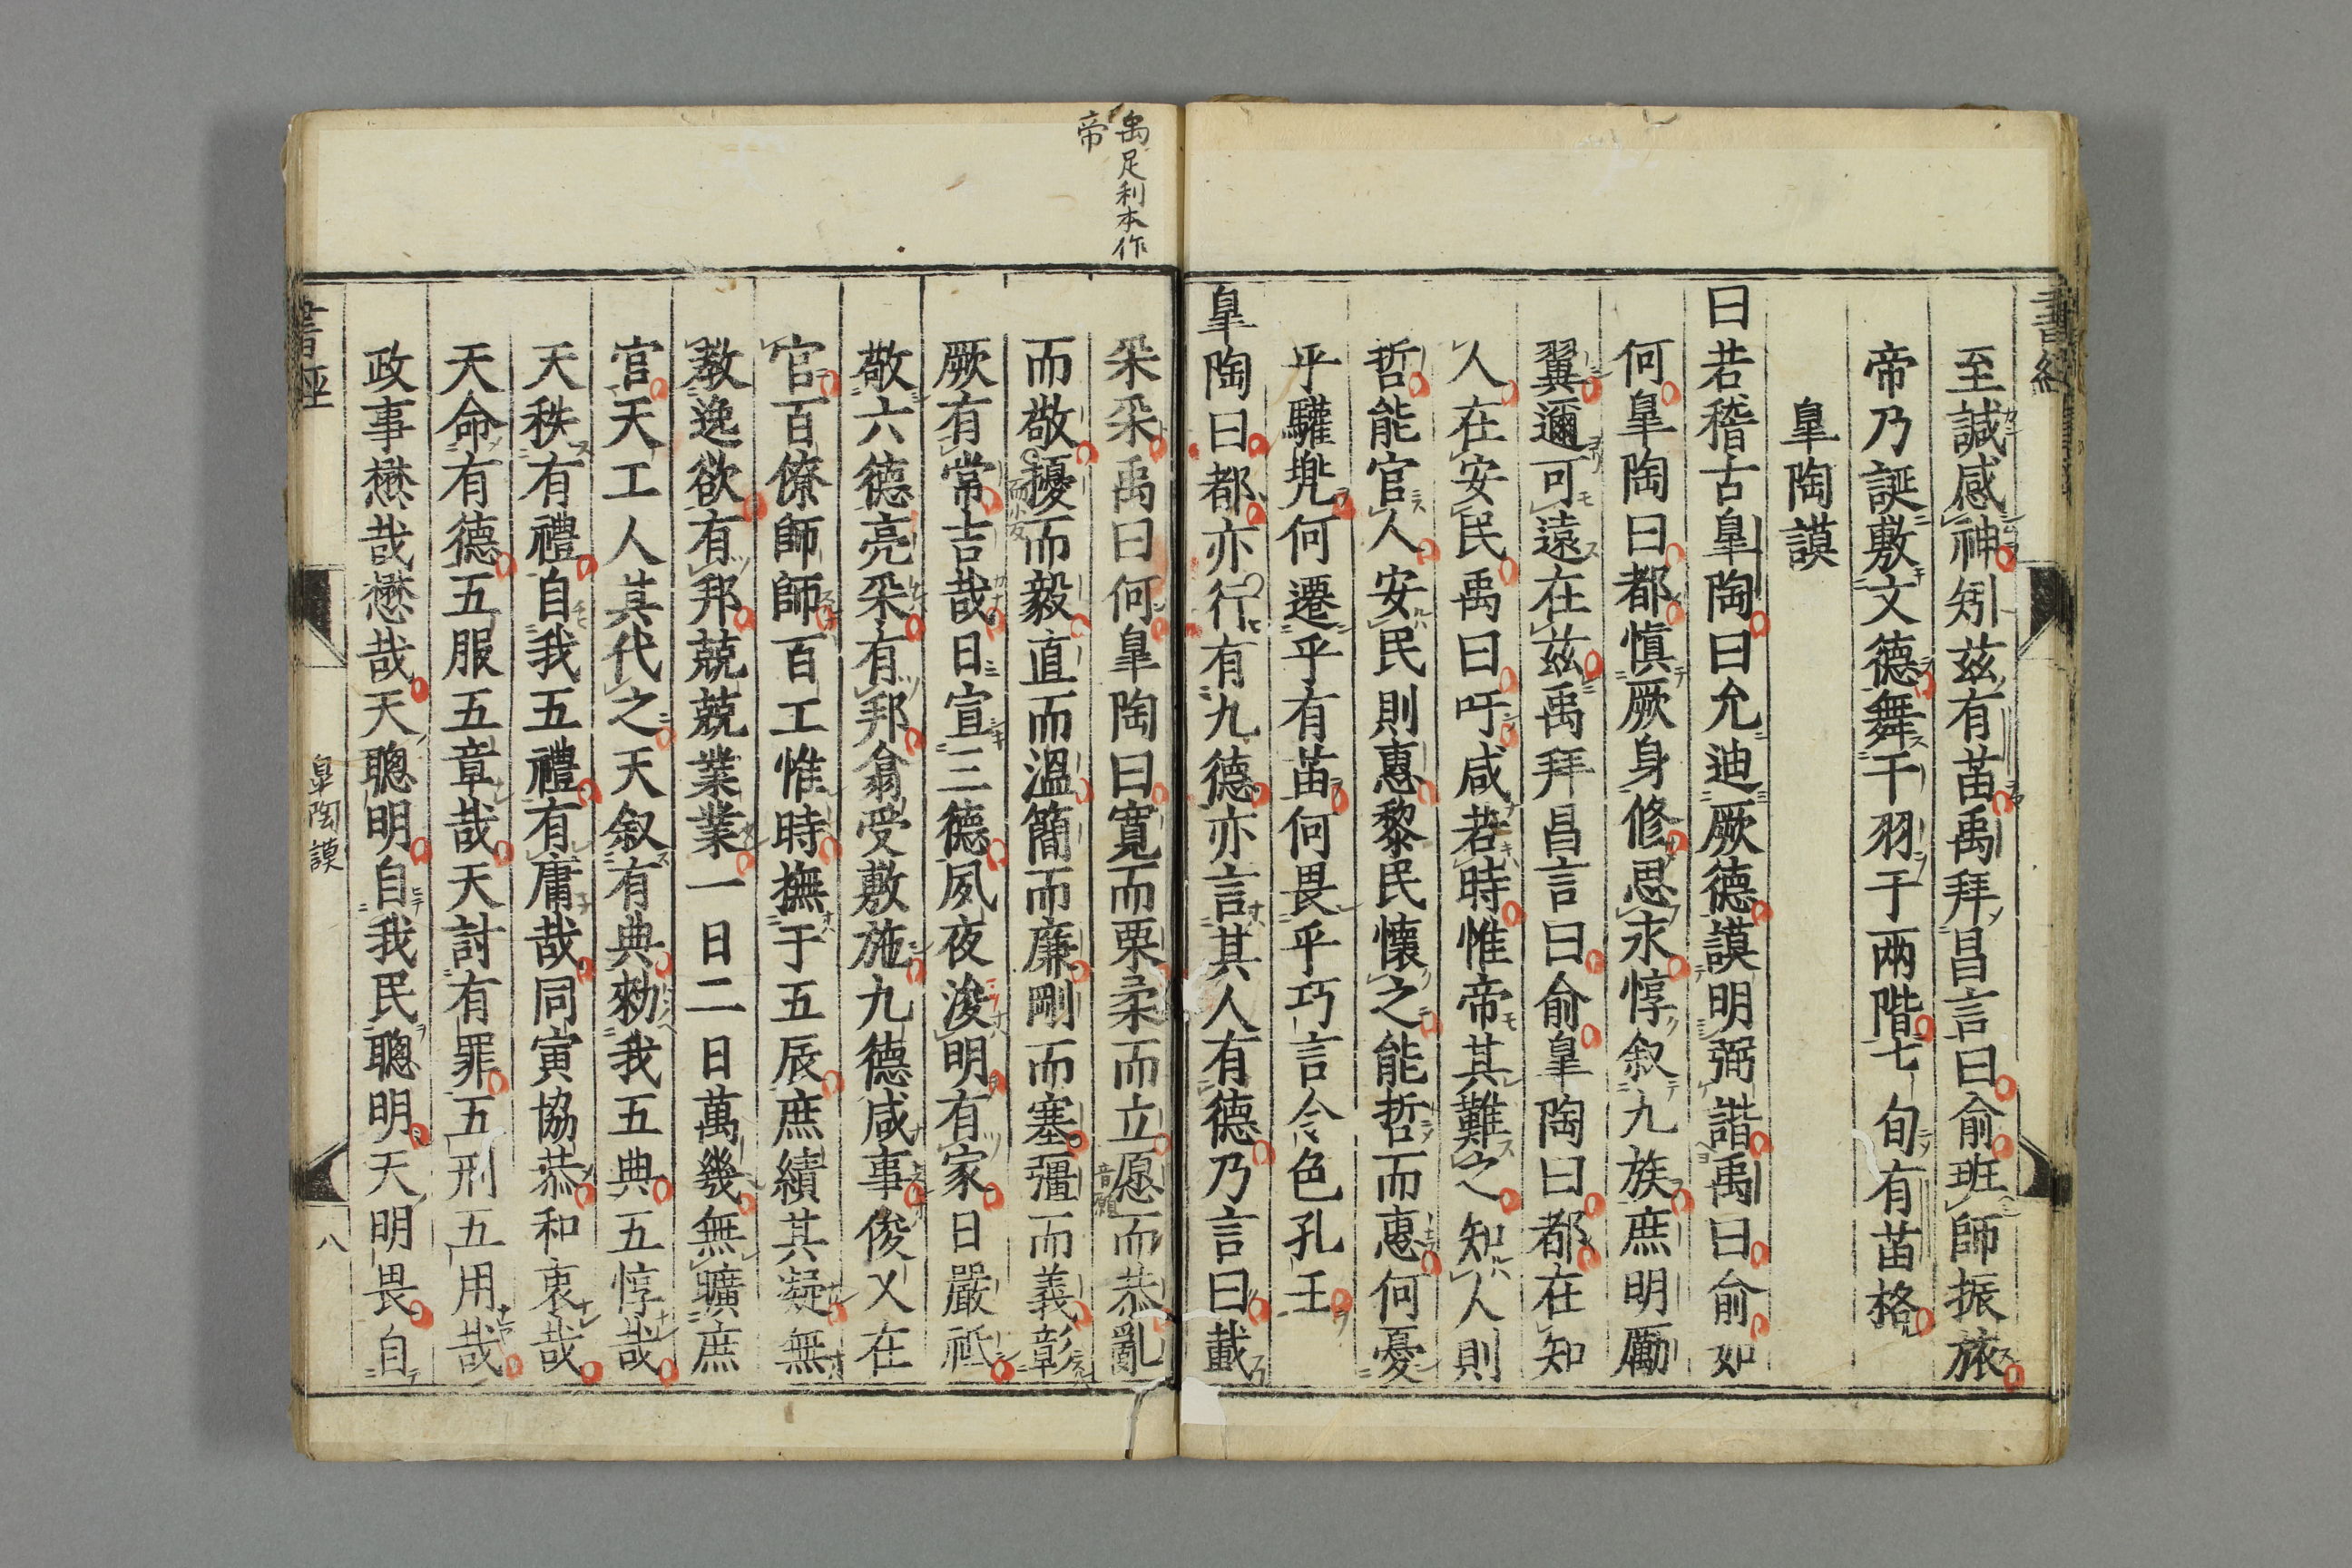 書經
至諴感神矧玆有苗禹拜昌言曰俞班師振旅
帝乃誕敷文德舞干羽于兩階七旬有苗格
皐陶謨
曰若稽古皐陶曰允迪厥德謨明弼諧禹曰俞如
何皐陶曰都愼厥身修思永惇叙九族庶明勵
翼邇可遠在玆禹拜昌言曰俞皐陶曰都在知
人在安民禹曰吁咸若時惟帝其難之知人則
哲能官人安民則惠黎民懷之能哲而惠何憂
乎驩兠何遷乎有苗何畏乎巧言令色孔壬
皐陶曰都亦行有九德亦言其人有德乃言曰載
禹足利本作
帝
采采禹曰何皐陶曰寬而栗柔而立愿而恭亂
音願
而敬擾而毅直而溫簡而廉剛而塞彊而義彰
厥有常吉哉日宣三德夙夜浚明有家日嚴祗
敬六德亮采有邦翕受敷施九德咸事俊乂在
官百僚師師百工惟時撫于五辰庶績其凝無
敎逸欲有邦兢兢業業一日二日萬幾無曠庶
官天工人其代之天叙有典勑我五典五惇哉
天秩有禮自我五禮有庸哉同寅協恭和衷哉
天命有德五服五章哉天討有罪五刑五用哉
政事懋哉懋哉天聰明自我民聰明天明畏自
書經
皐陶謨
八